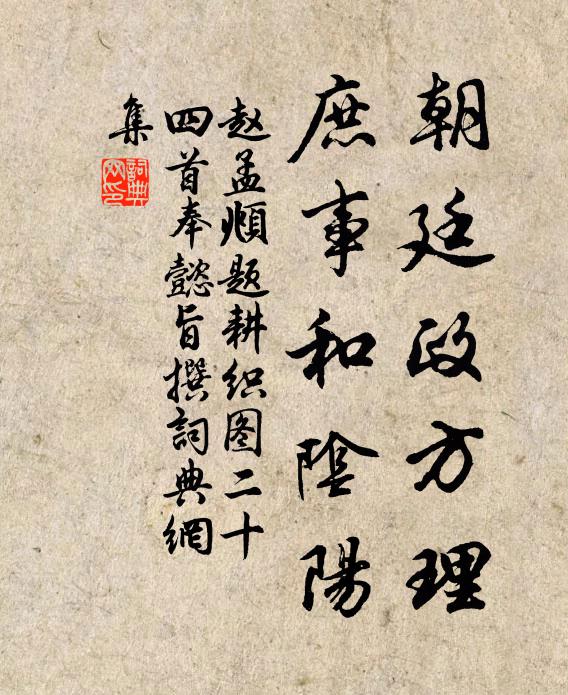 朝廷政方理
庶事和陰陽
赵孟頫题耕织图二十
四首奉懿旨撰詞典網
集
詞典網印